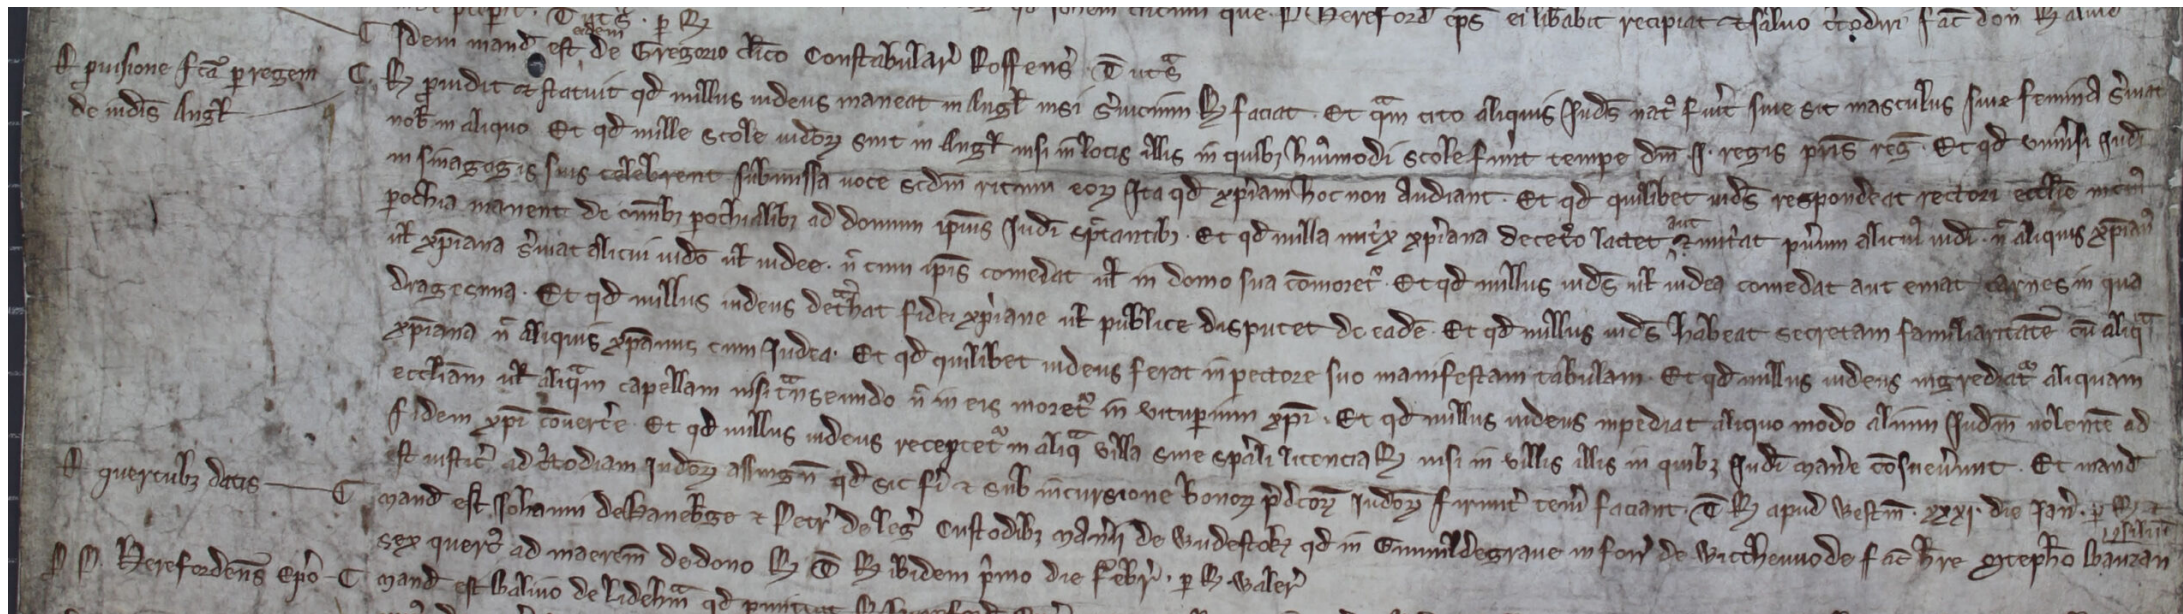 Idem mand est eidem de Gregorio clico Constabular Roffens T ut s
per R
D puisione fca p regem
de iudis Angl
R puidit et statuit qd nullus iudeus maneat in Angl nisi suicium R faciat. Et qam cito aliquis Iuds nat fuit siue sit masculus siue femina suiat
nob in aliquo Et qd nulle scole iudor sint in Angl nisi in locis illis in quib hmodi scole funt tempe dni I. regis pris reg. Et qd uniusi Iudi
in sinagogis suis celebrent submissa uoce scdm ritum eor Ita qd xpiani hoc non audiant. Et qd quilibet iuds respondeat rectori ecclie in cui
pochia manent de omib pochialib ad domum ipius Iudi sptantib. Et qd nulla nutx xpiana deceto lactet aut nutiat puum alicui iudi. n aliquis xpian
ul xpiana suiat alicui iudo ul iudee. n cum ipis comedat ul in domo sua comoret. Et qd nullus iuds ul iudea comedat aut emat carnes in qua
dragesima. Et qd nullus iudeus dethat fidei xpiane ul publice disputet de eade. Et qd nullus iuds habeat secretam familiaritate cu aliqa
xpiana n aliquis xpianus cum Iudea. Et qd quilibet iudeus ferat in pectore suo manifestam tabulam. Et qd nullus iudeus ingrediat aliquam
eccliam ul aliqam capellam nisi tanseundo n in eis moret in uitupium xpi. Et qd nullus iudeus inpediat aliquo modo alium Iudm uolente ad
fidem xpi couerte. Et qd nullus iudeus receptet in aliqa uilla sine spali licencia R nisi in uillis illis in quib Iudi mane cosueuunt. Et mand
est iustic ad ctodiam Iudor assign qd sic fi et sub incursione bonor pdcor Iudor firmit teni faciant. T R apud Westm. xxxi. die Ian. p R et
D quercub datis
mand est Iohanni de Haneberge et Petr de Leg Custodib Manii de Wudestok qd in Gunnildegraue in for de Wicchewode fac hre Steph Bauzan
sex querc ad maerem de dono R T R ibidem pmo die Febr. p R Waler
P Herefordens epo
mand est baliuo de Lidehm qd